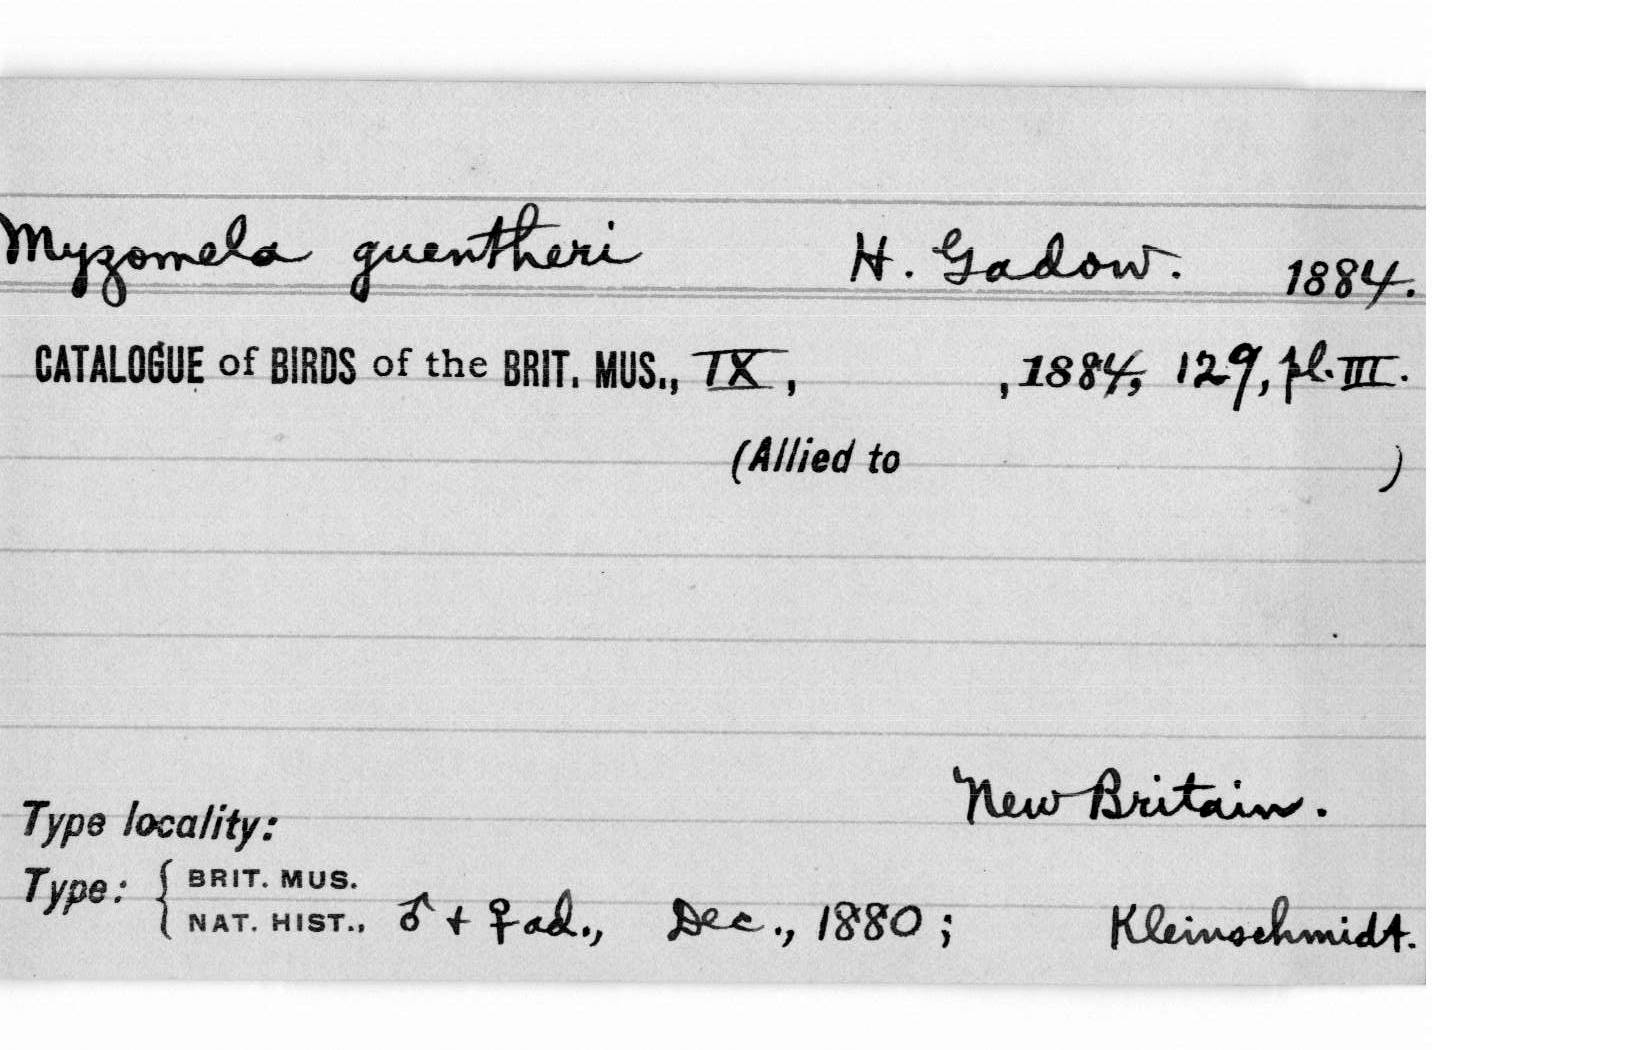 Myzomela guentheri H. Gadow. 1884.
CATALOGUE of BIRDS of the BRIT. MUS., IX, , 1884, 129, pl. III.
(Allied to )
New Britain.
Type locality:
Type: { BRIT. MUS.
NAT. HIST., ♂ + ♀ ad., Dec., 1880; Kleinschmidt.